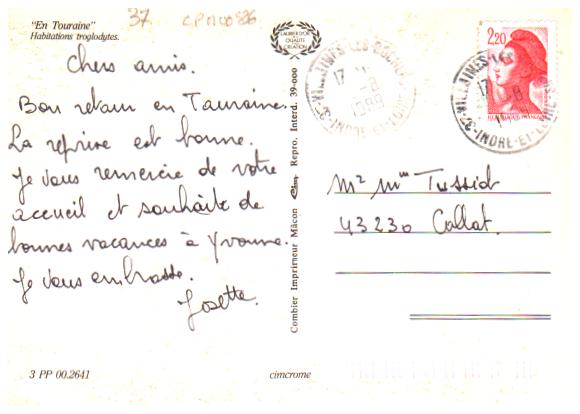 37 CPM00886
"En Touraine"
Habitations troglodytes.
LAURIER D'OR
DE LA
QUALITÉ
DE LA
CRÉATION
Chers amis.
Bon retour en Touraine.
La reprise est bonne.
Je vous remercie de votre
accueil et souhaite de
bonnes vacances à Yvonne.
Je vous embrasse.
Josette.
Combier Imprimeur Mâcon Cim Repro. Interd. 39-000
37-VILLAINES-LES-ROCHERS
17 H
-8
1989
INDRE-ET-LOIRE
2,20
REPUBLIQUE FRANÇAISE
37-VILLAINES-LES
17 H
-8
INDRE-ET-LOIRE
Mr Mme Tussiot
43230 Collat.
3 PP 00.2641
cimcrome